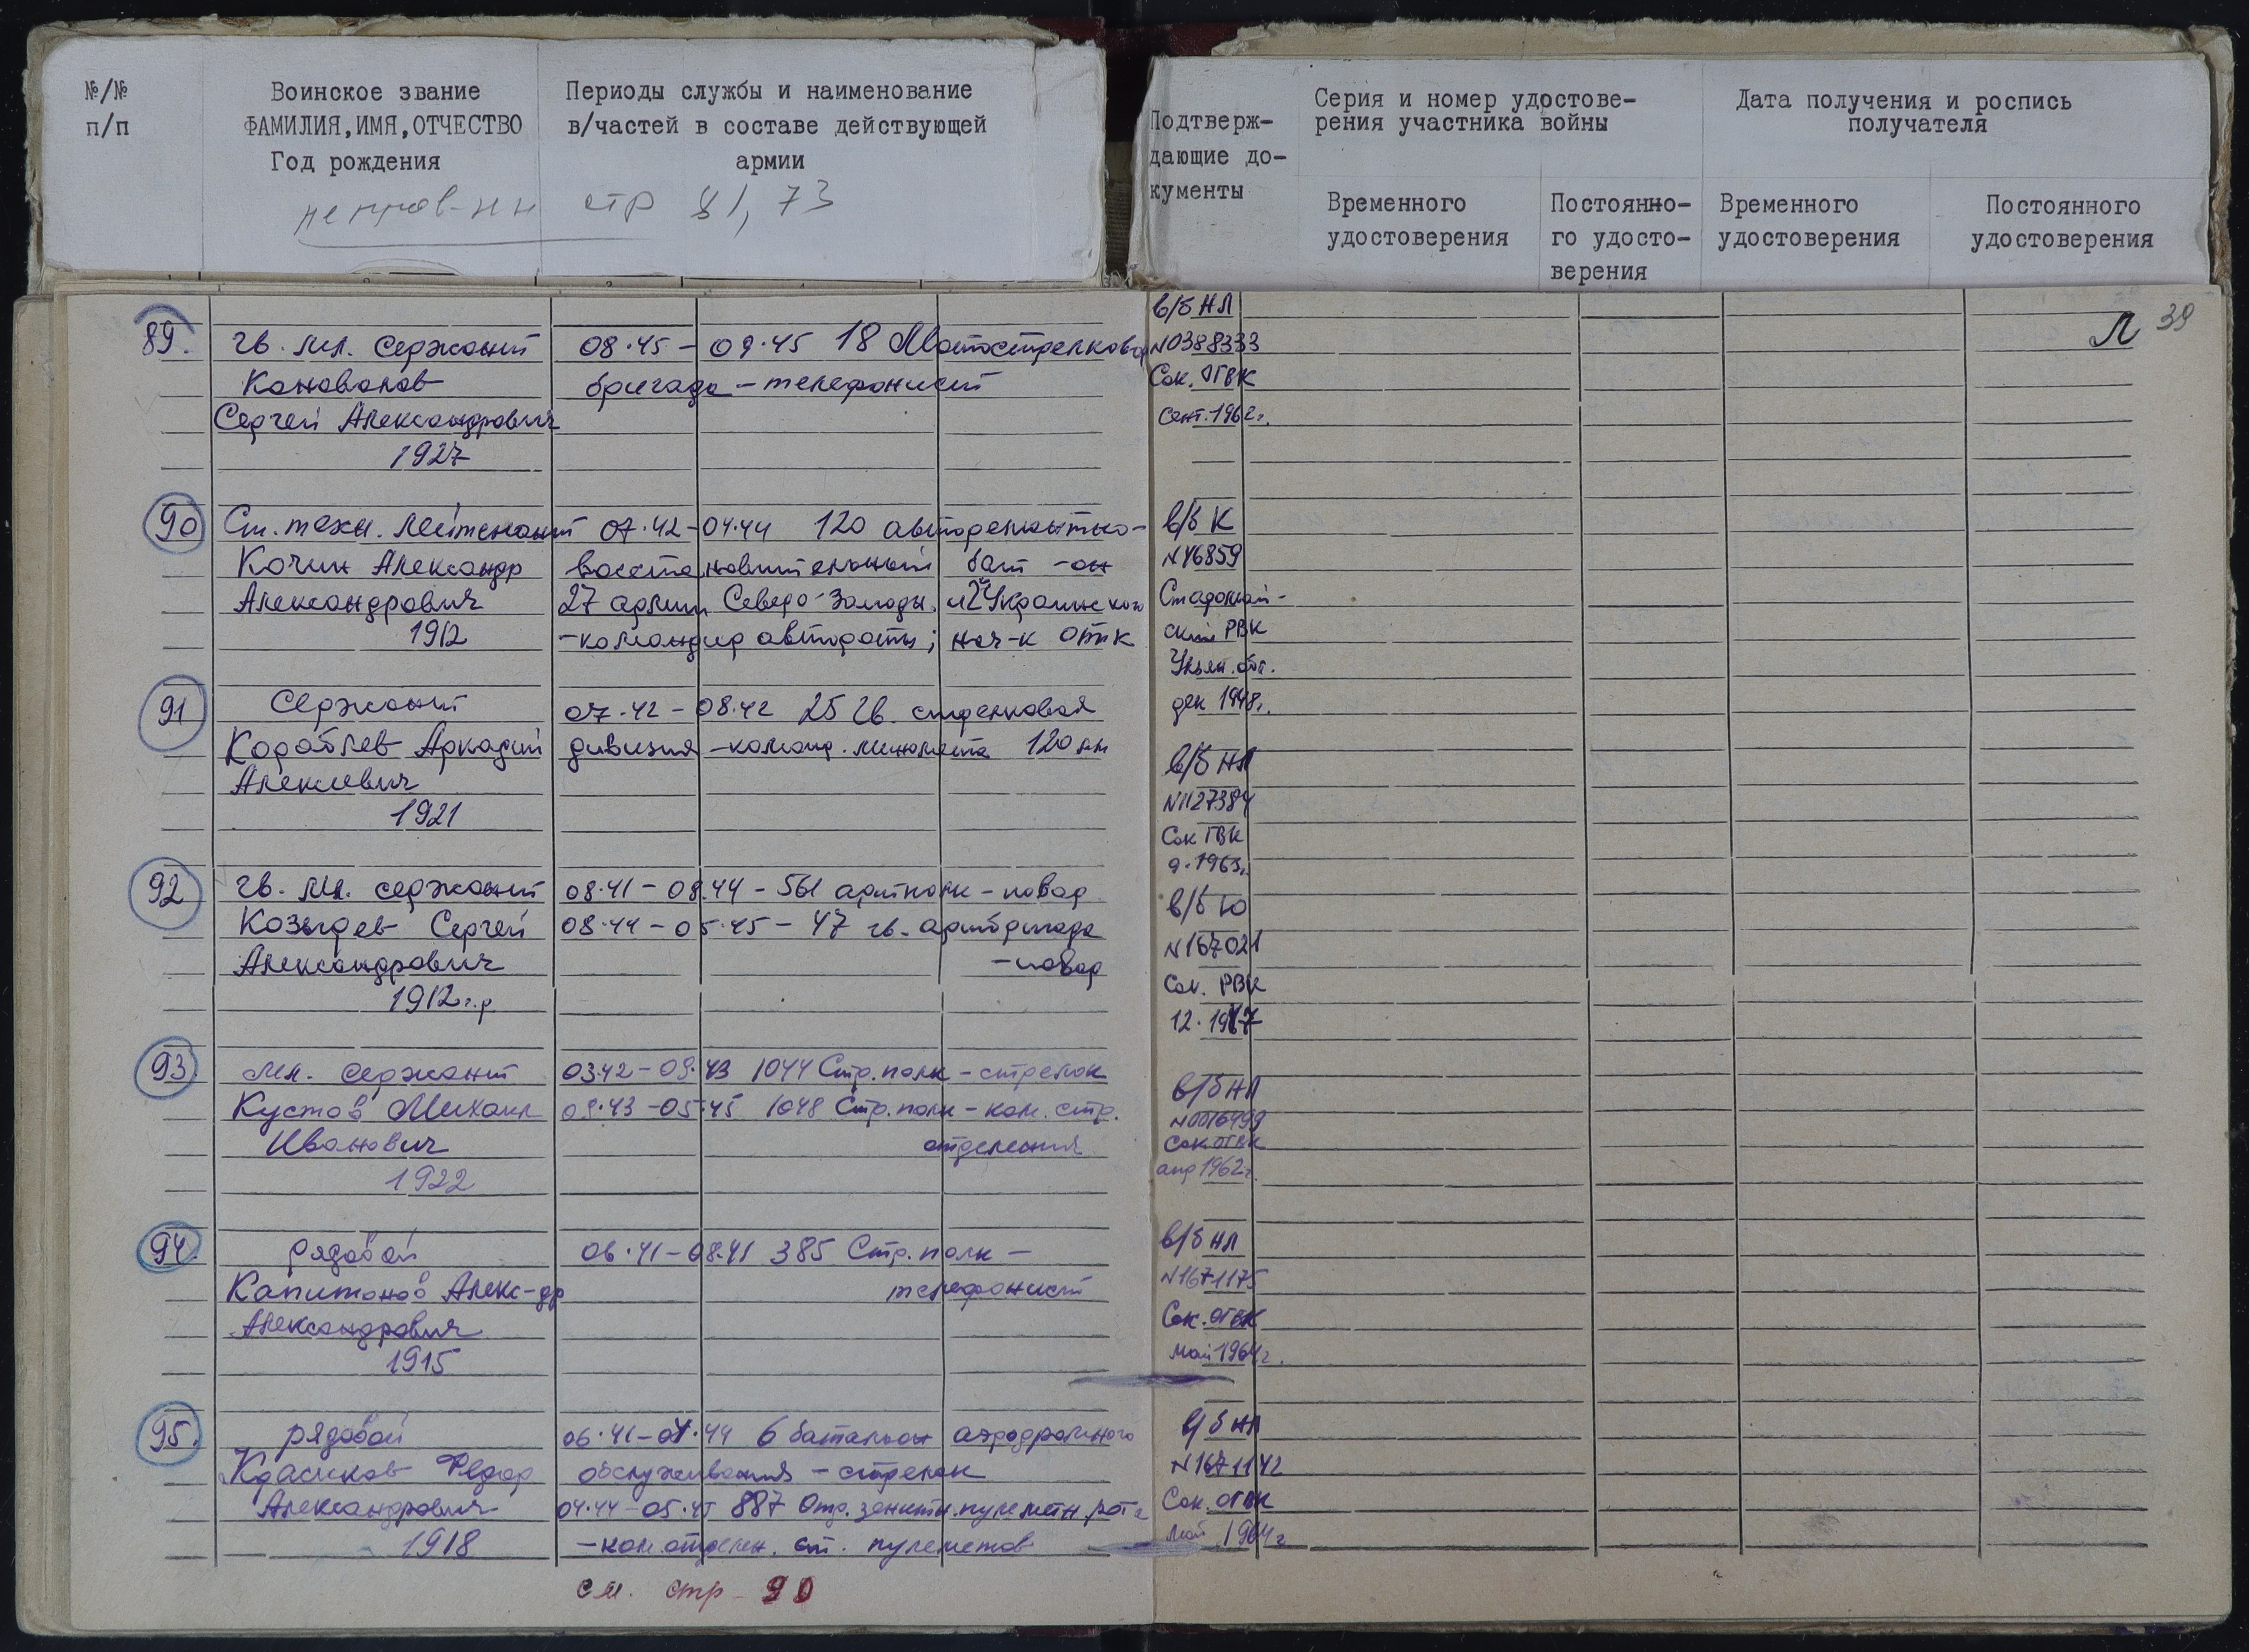 №/№
п/п
Воинское звание
ФАМИЛИЯ, ИМЯ, ОТЧЕСТВО
Год рождения
Периоды службы и наименование
в/частей в составе действующей
армии
стр 81, 73
Подтверж-
дающие до-
кументы
Серия и номер удостове-
рения участника войны
Дата получения и роспись
получателя
Временного
удостоверения
Постоянно-
го удосто-
верения
Временного
удостоверения
Постоянного
удостоверения
39
89. гв. мл. сержант 08.45 – 09.45 18 Мотострелковая
Коновалов бригада – телефонист
Сергей Александрович
1927
в/б НЛ
N0388333
Сок. ОГВК
сент. 1962г.
90 Ст. техн. лейтенант 07.42–04.44 120 авторемонтно-
Кочин Александр восстановительный бат-он
Александрович 27 армии Северо-Западн. и 2 Украинского
1912 –командир автороты; нач-к ОТК
в/б К
N46859
ский РВК
Ульян. обл.
дек 1948г.
91 Сержант 07.42 – 08.42 25 гв. стрелковая
Кораблев Аркадий дивизия –команд. миномета 120 мм
Алексеевич
1921
в/б НЛ
N1127384
Сок ГВК
9.1963г.
92 гв. мл. сержант 08.41 – 08.44 – 561 артполк – повар
Козырев Сергей 08.44 – 05.45 – 47 гв. артбригада
Александрович –повар
1912 г.р
в/б Ю
N167021
Сок. РВК
93 мл. сержант 03.42 – 09.43 1044 Стр. полк – стрелок
Кустов Михаил 09.43 – 05.45 1048 Стр. полк – ком. стр.
Иванович отделения
1922
в/б НЛ
N0016499
Сок ОГВК
апр 1962г.
94. рядовой 06.41 – 08.41 385 Стр. полк –
Капитонов Алекс-др телефонист
Александрович
1915
в/б НЛ
N1671175
Сок. ОГВК
май 1964г.
95. рядовой 06.41 – 04.44 6 батальон аэродромного
Красиков Федор обслуживания – стрелок
Александрович 04.44 – 05.45 887 Отд. зенитн. пулеметн. рота
1918 – ком. отделен. ст. пулеметов
в/б НЛ
N1671142
Сок. ОГВК
май 1964г
см. стр – 90